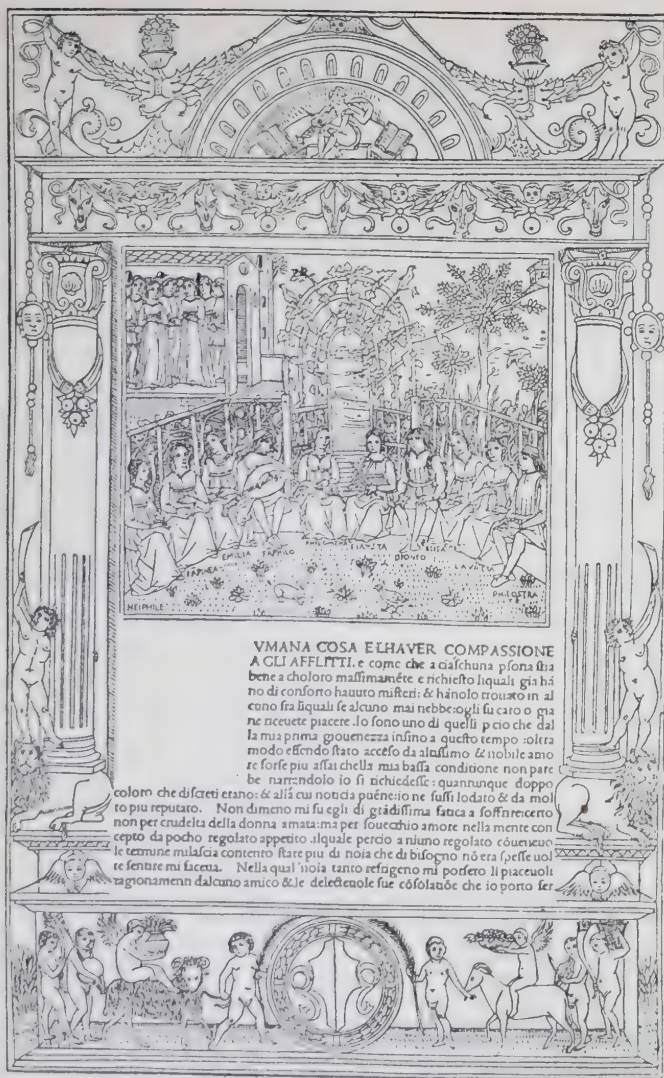 NEIPHILE
EMILIA
DIONEO
ELISA
PHILOSTRA
VMANA COSA E LHAVER COMPASSIONE
A GLI AFFLITTI. e come che a ciaschuna psona stia
bene a choloro massimamēte e richiesto liquali gia hā
no di conforto hauuto misteri: & hānolo trouato in al
cuno fra liquali se alcuno mai nebbe: ogli fu caro o gia
ne riceuete piacere. Io sono uno di quelli pcio che dal
la mia prima giouenezza insino a questo tempo: oltra
modo essendo stato acceso da altissimo & nobile amo
re forse piu assai chella mia bassa conditione non pare
be narrandolo io si richiedesse: quantunque doppo
coloro che discreti erano: & alla cui noticia puēne: io ne fussi lodato & da mol
to piu reputato. Non dimeno mi fu egli di grādissima fatica a soffrire: certo
non per crudelta della donna amata: ma per souerchio amore nella mente con
cepto da pocho regolato appetito. ilquale percio a niuno regolato cōueneuo
le termine mi lascia contento stare piu di noia che di bisogno nō era spesse uol
te sentire mi faceua. Nella qual noia tanto refrigerio mi porsero li piaceuoli
ragionamenti dalcuno amico & le delecteuole sue cōsolatiōe che io porto fer